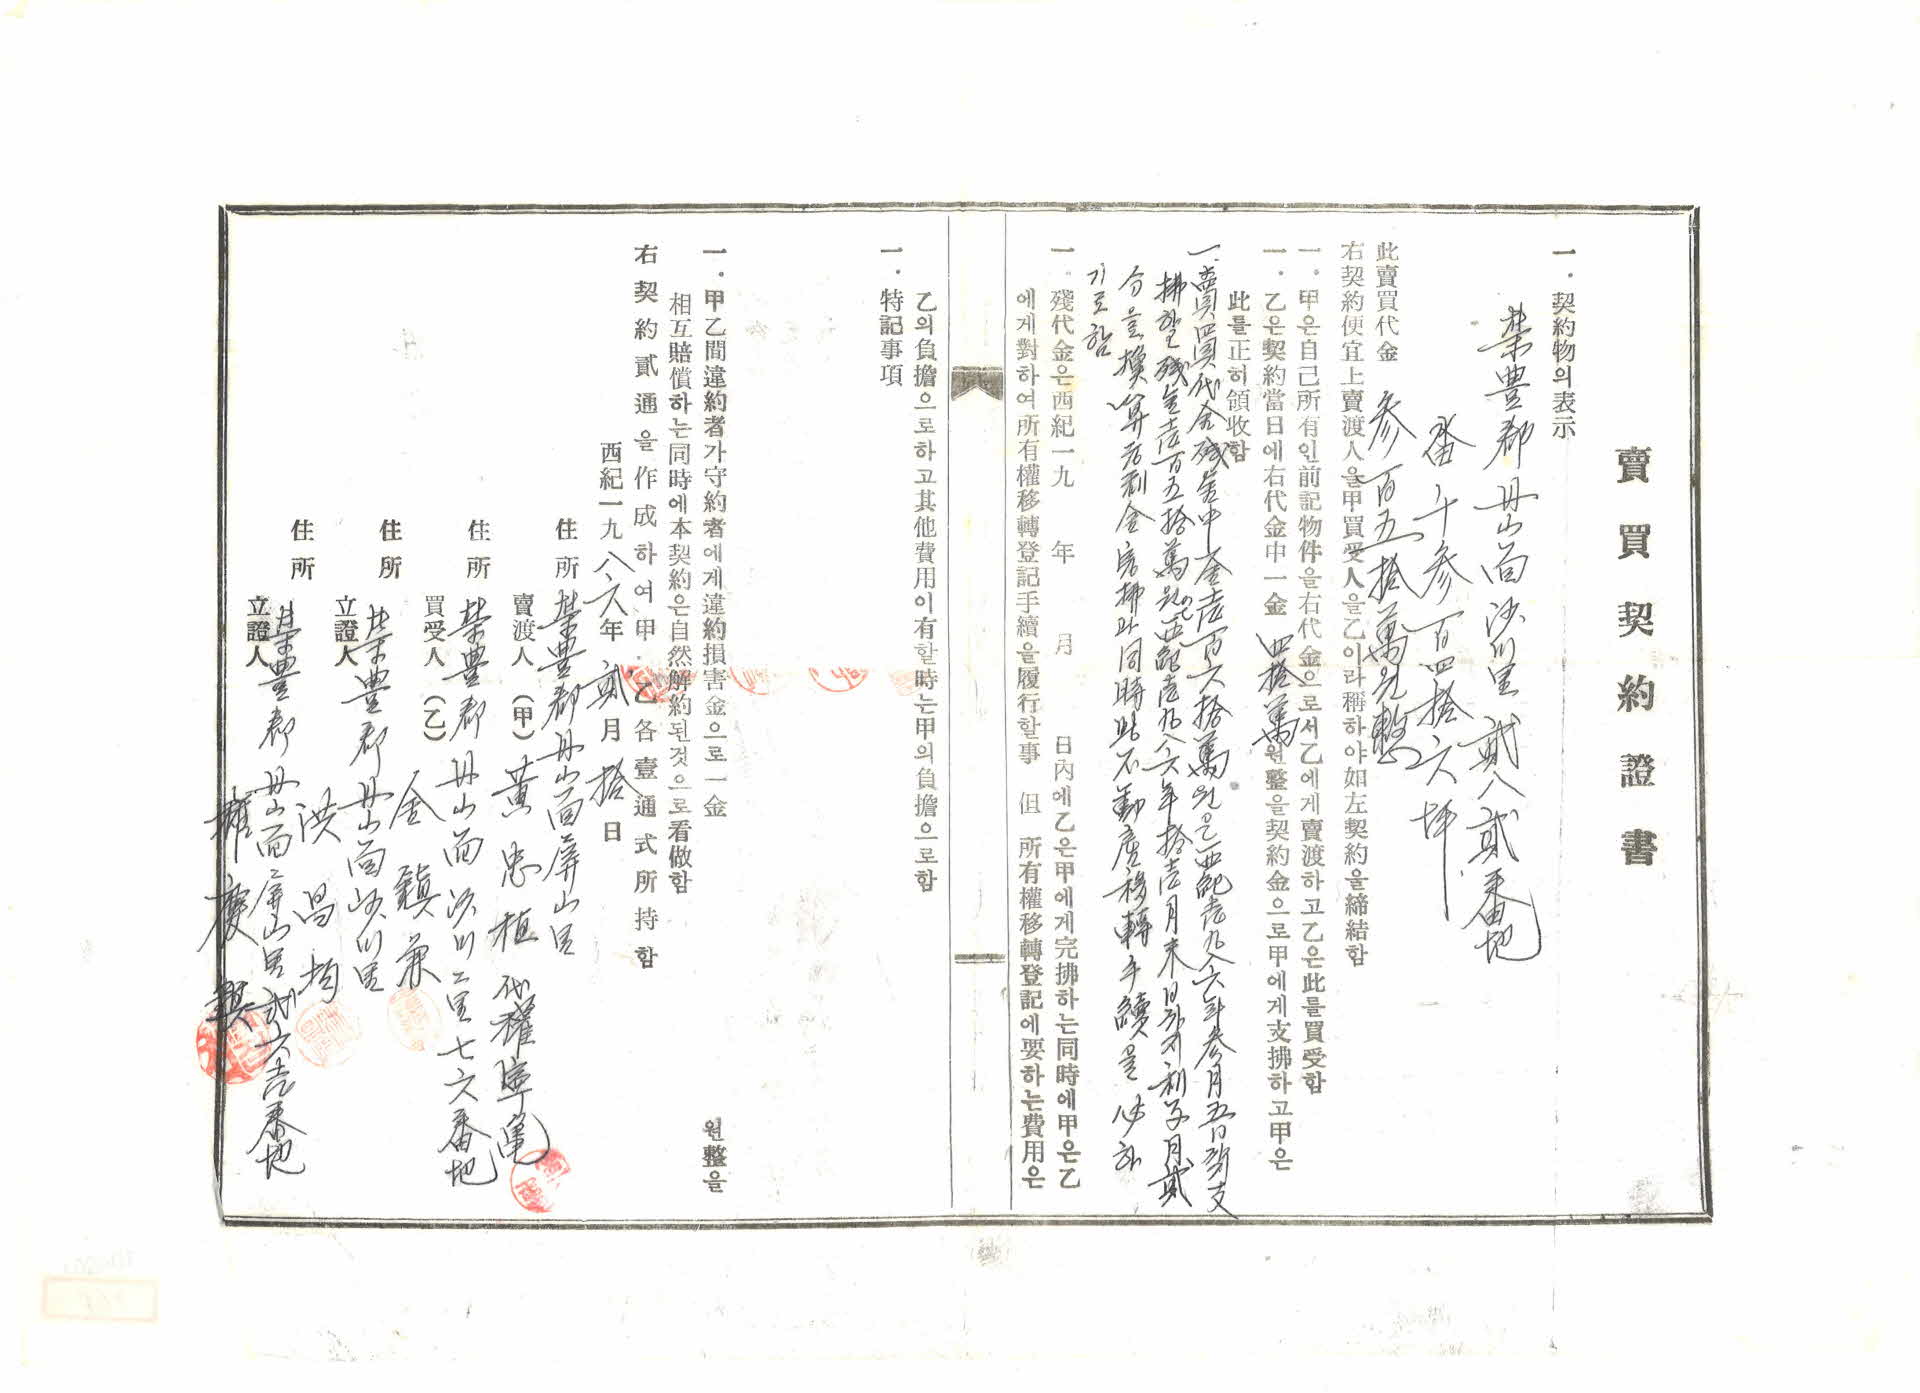 賣買契約證書
一．契約物의表示
榮豊郡丹山面沙川里貳八貳番地
畓 千參百四拾六坪
此賣買代金 參百五拾萬원整
右契約便宜上賣渡人을甲買受人을乙이라稱하야如左契約을締結함
一．甲은自己所有인前記物件을右代金으로서乙에게賣渡하고乙은此를買受함
一．乙은契約當日에右代金中一金 四拾萬 원整을契約金으로甲에게支拂하고甲은
此를正히領收함
一. 賣買代金殘金中金壹百六拾萬원은西紀壹九八六年參月五日字支
拂할 殘金壹百五拾萬원은西紀壹九八六年拾壹月末日까지利子月貳
分을換算 金 拂과同時 不動産移轉手續을 하
기로함
一．殘代金은西紀一九 年 月 日內에乙은甲에게完拂하는同時에甲은乙
에게對하여所有權移轉登記手續을履行할事 但 所有權移轉登記에要하는費用은
乙의負擔으로하고其他費用이有할時는甲의負擔으로함
一．特記事項
一．甲乙間違約者가守約者에게違約損害金으로一金 원整을
相互賠償하는同時에本契約은自然解約된것으로看做함
右契約貳通을作成하여甲．乙各壹通式所持함
西紀一九八六年 貳月 拾日
住所 榮豊郡丹山面屛山里
賣渡人（甲） 黃忠植 代
住所 榮豊郡丹山面沙川二里七六番地
買受人（乙） 金鎭
住所 榮豊郡丹山面沙川里
立證人 洪昌均
住所 榮豊郡丹山面屛山里貳六壹番地
立證人 權慶